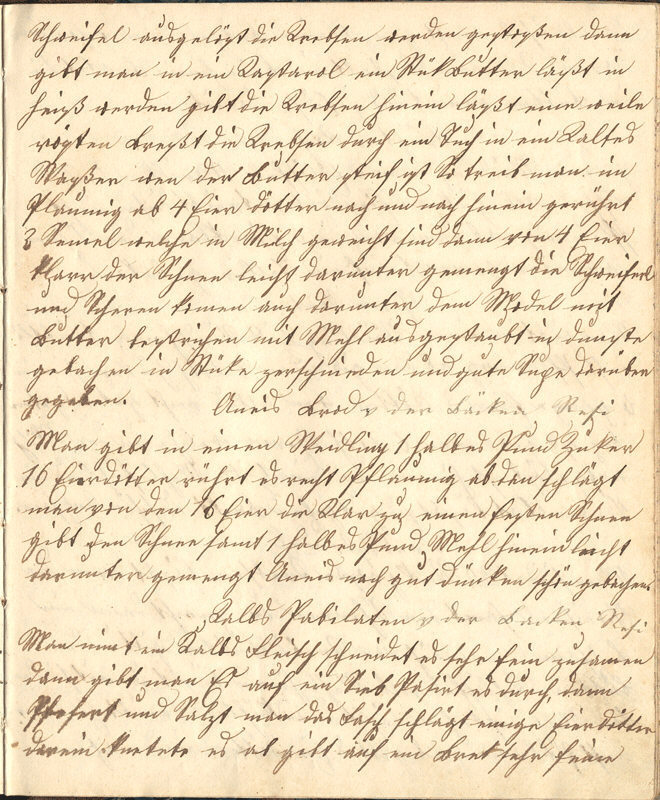 Schweifel ausgelößt die Krebsen werden gestoßen dann
gibt man in ein Kastarol ein Stük Butter läßt in
heiß werden gibt die Krebsen hinein läßt eine weile
rösten Breßt die Krebsen durch ein Tuch in ein Kaltes
Waßer wen der Butter steif ist So treib man im
Pflaumig ab 4 Eier dötter nach und nach hinein gerührt
3 Semel welche in Milch geweicht sind dann von 4 Eier
Klarr der Schnee leicht darunter gemengt die Schweiferl
und Scheren komen auch darunter dem Model mit
Butter bestrichen mit Mehl ausgestaubt in dunste
gebachen in Stüke zerschnieden und gute Supe darüber
gegeben.
Aneis Brod v der Bäcken Resi
Man gibt in einen Weidling 1 halbes Pund Zuker
16 Eierdötter rührt es recht Pflaumig ab dan schlägt
man von den 16 Eier die Klar zu einen festen Schnee
gibt den Schnee samt 1 halbes Pund Mehl hinein leicht
darunter gemengt Aneis nach gut dünken schön gebachen.
Kalbs Pabilaten v der Backen Resi
Man nimt ein Kalbs Fleisch schneidet es sehr fein zusamen
dann gibt man Es auf ein Sieb Pasirt es durch, dann
Pfefert und Salzt man das Fasch schlägt einige Eierdötter
darein knetete es ab gibt auf ein Bret sehr feine